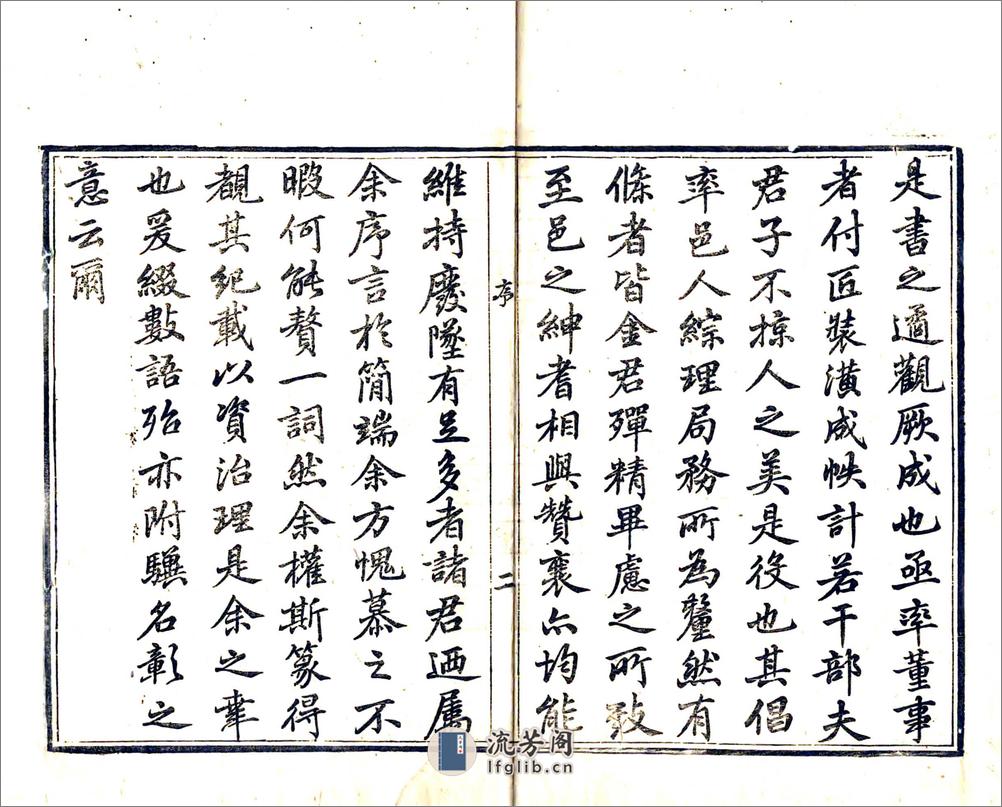 是書之適觀厥成也亟率董事
者付匠裝潢成帙計若干部夫
君子不掠人之美是役也其倡
率邑人綜理局務所為釐然有
條者皆金君殫精畢慮之所致
至邑之紳耆相與贊襄亦均能
序
二
維持廢墜有足多者諸君迺屬
余序言於簡端余方愧慕之不
暇何能贅一詞然余權斯篆得
覩其紀載以資治理是余之幸
也爰綴數語殆亦附驥名彰之
意云爾
流芳阁
lfglib.cn